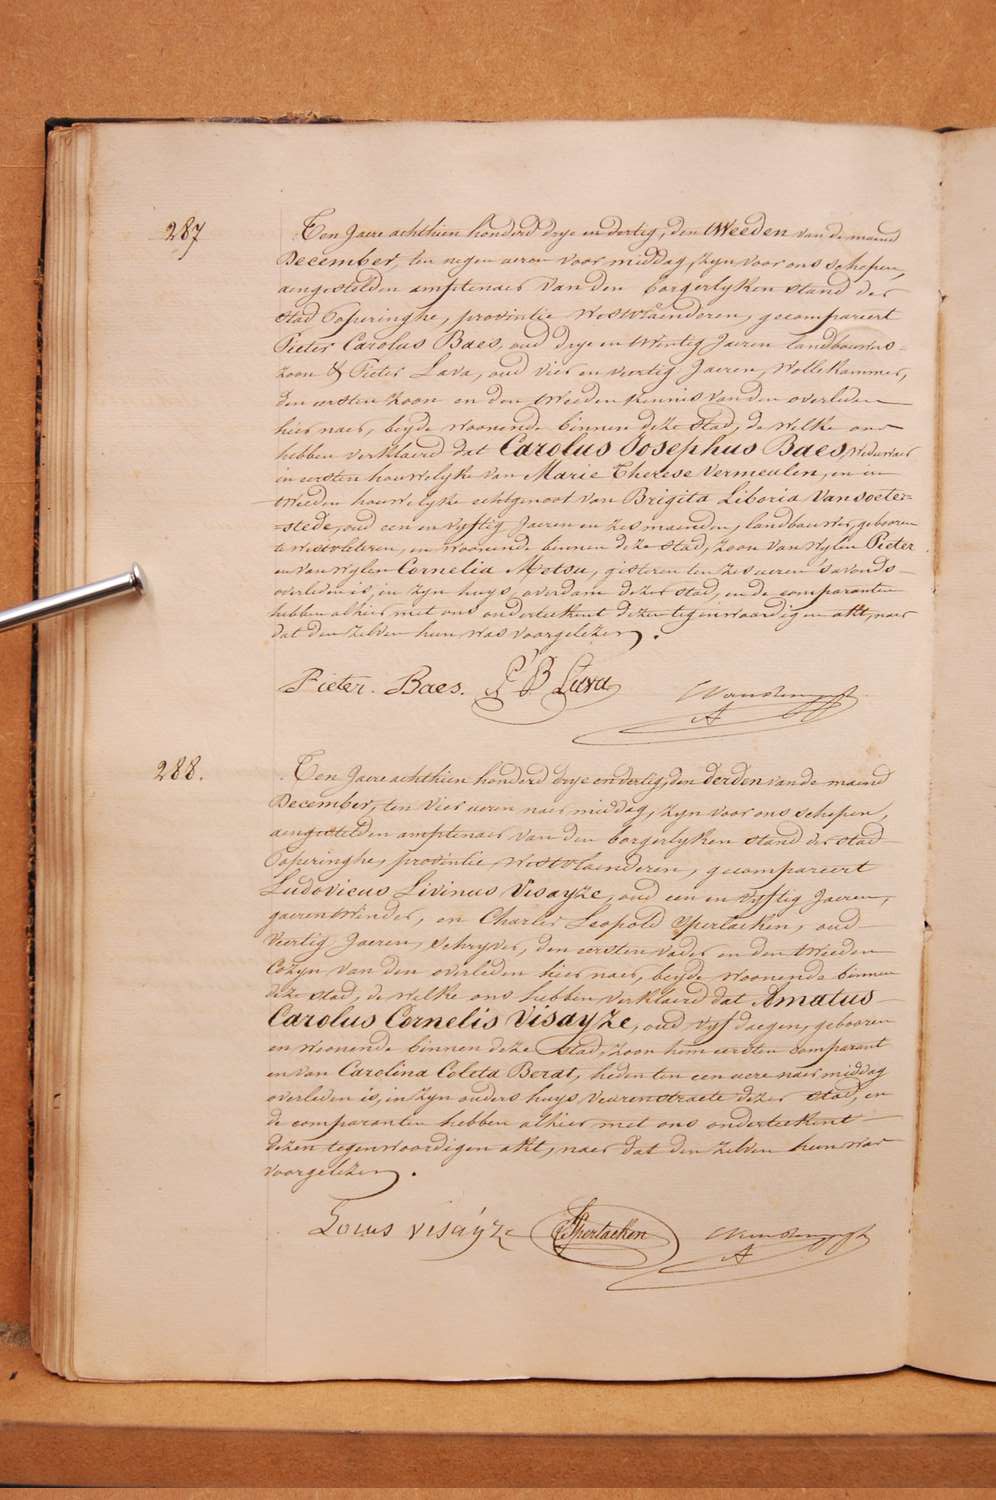 287
Ten Jaere achthien honderd drye en dertig, den tweeden van de maend
December, ten negen ueren voor middag, zyn voor ons schepen,
aengestelden amptenaer van den borgerlyken stand der
stad Poperinghe, provintie Westvlaenderen, gecompareert
Pieter Carolus Baes, oud drye en twintig Jaeren landbouwers-
zoon & Pieter Lava, oud vier en veertig Jaeren, Wollekammer,
den eersten zoon en den tweeden kennis van den overleden
hier naer, beyde woonende binnen deze stad, de welke ons
hebben verklaerd dat Carolus Josephus Baes, weduwaer
in eersten houwelyke van Marie Therese Vermeulen, en in
tweeden houwelyke echtgenoot van Brigita Liboria Vansoeter=
=stede, oud een en vyftig Jaeren en zes maenden, landbouwer, gebooren
te Westvleteren, en woonende binnen deze stad, zoon van wylen Pieter
en van wylen Cornelia Metsu, gisteren ten zes ueren s'avonds
overleden is, in zyn huys, overdam dezer stad, en de comparanten
hebben alhier met ons onderteekent dezen tegenwoordigen akt, naer
dat den zelven hun was voorgelezen.
Pieter. Baes. P B Lava
288.
Ten Jaere achthien honderd drye en dertig, den derden van de maend
December, ten vier ueren naer middag, zyn voor ons schepen,
aengestelden amptenaer van den borgerlyken stand der stad
Poperinghe, provintie Westvlaenderen, gecompareert
Ludovicus Livinus Visayze, oud een en vyftig Jaeren,
gaerentwinder, en Charles Leopold Ypertacken, oud
veertig Jaeren, schryver, den eersten vader en den tweeden
Cozyn van den overleden hier naer, beyde woonende binnen
deze stad, de welke ons hebben verklaerd dat Amatus
Carolus Cornelis Visayze, oud vyf daegen, gebooren
en woonende binnen deze stad, zoon hem eersten comparant
en van Carolina Coleta Berat, heden ten een uere naer middag
overleden is, in zyn ouders huys veurenstraete dezer stad, en
de comparanten hebben alhier met ons onderteekent
dezen tegenwoordigen akt, naer dat den zelven hun was
voorgelezen.
Louis visayze Ypertacken